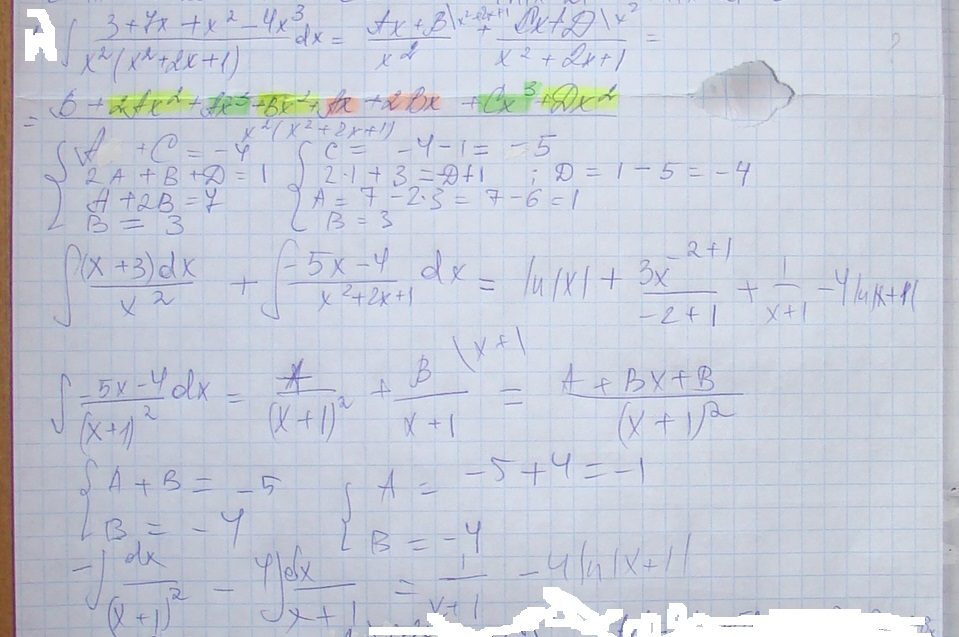 ∫ (3+7x+x²-4x³)/(x²(x²+2x+1)) dx = (Ax+B\x²+2x+1)/x² + (Cx+D\x²)/(x²+2x+1) =
= (B+2Ax²+Ax³+Bx²+Ax+2Bx+Cx³+Dx²)/(x²(x²+2x+1))
{ A +C = -4 { C = -4-1 = -5
2A+B+D=1 2·1+3=D+1 ; D=1-5=-4
A+2B=7 A=7-2·3=7-6=1
B=3 B=3
∫ (x+3)dx/x² + ∫ (-5x-4)/(x²+2x+1) dx = ln|x| + 3x^(-2+1)/(-2+1) + 1/(x+1) -4ln|x+1|
∫ (-5x-4)dx/(x+1)² = A/(x+1)² + B\x+1/(x+1) = (A+Bx+B)/(x+1)²
{ A+B = -5 { A = -5+4=-1
B = -4 B = -4
-∫ dx/(x+1)² - 4∫dx/(x+1) = 1/(x+1) -4ln|x+1|